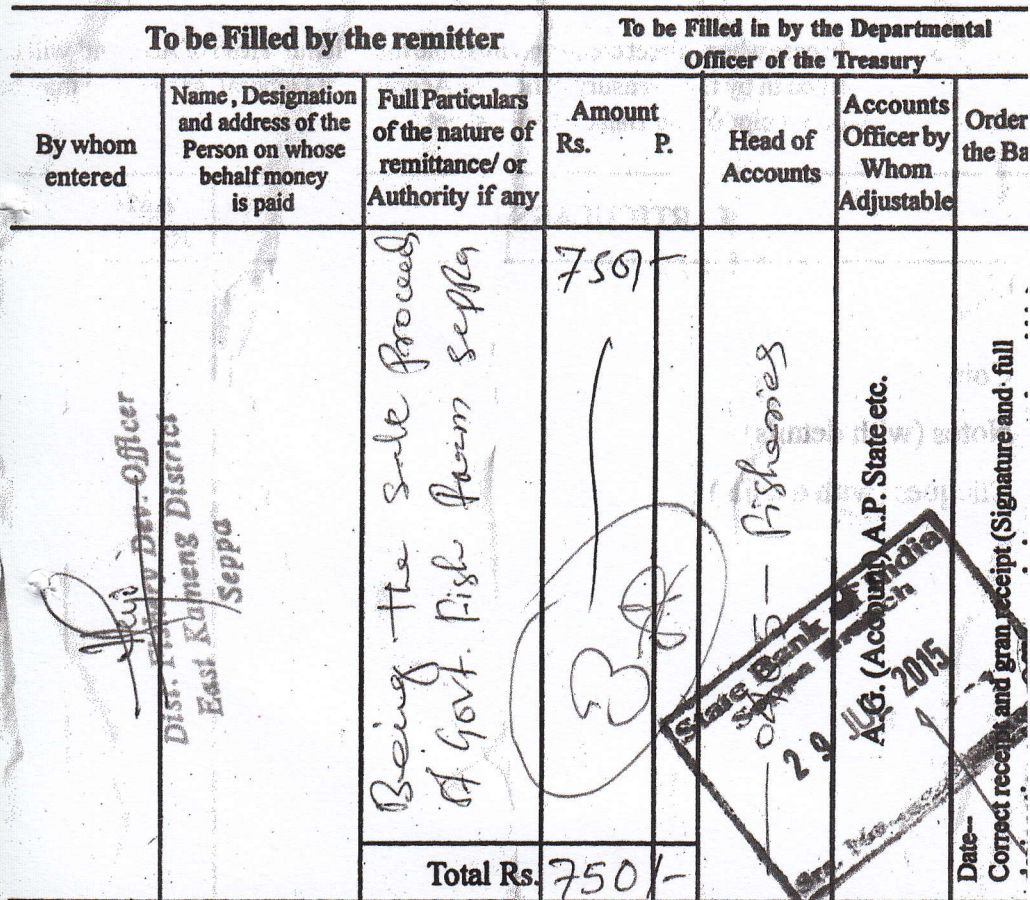 To be Filled by the remitter
To be Filled in by the Departmental
Officer of the Treasury
By whom
entered
Name, Designation
and address of the
Person on whose
behalf money
is paid
Full Particulars
of the nature of
remittance/ or
Authority if any
Amount
Rs. P.
Head of
Accounts
Accounts
Officer by
Whom
Adjustable
Order
the Ba
Dist. Fishery Dev. Officer
East Kameng District
Seppa
Being the sale Proceed
of Govt. Fish Farm Seppa
750/-
Fisheries
A.G. (Account) A.P. State etc.
State Bank of India
Seppa Branch
29 2015
Date--
Correct receipt and gran receipt (Signature and full
Total Rs. 750/-